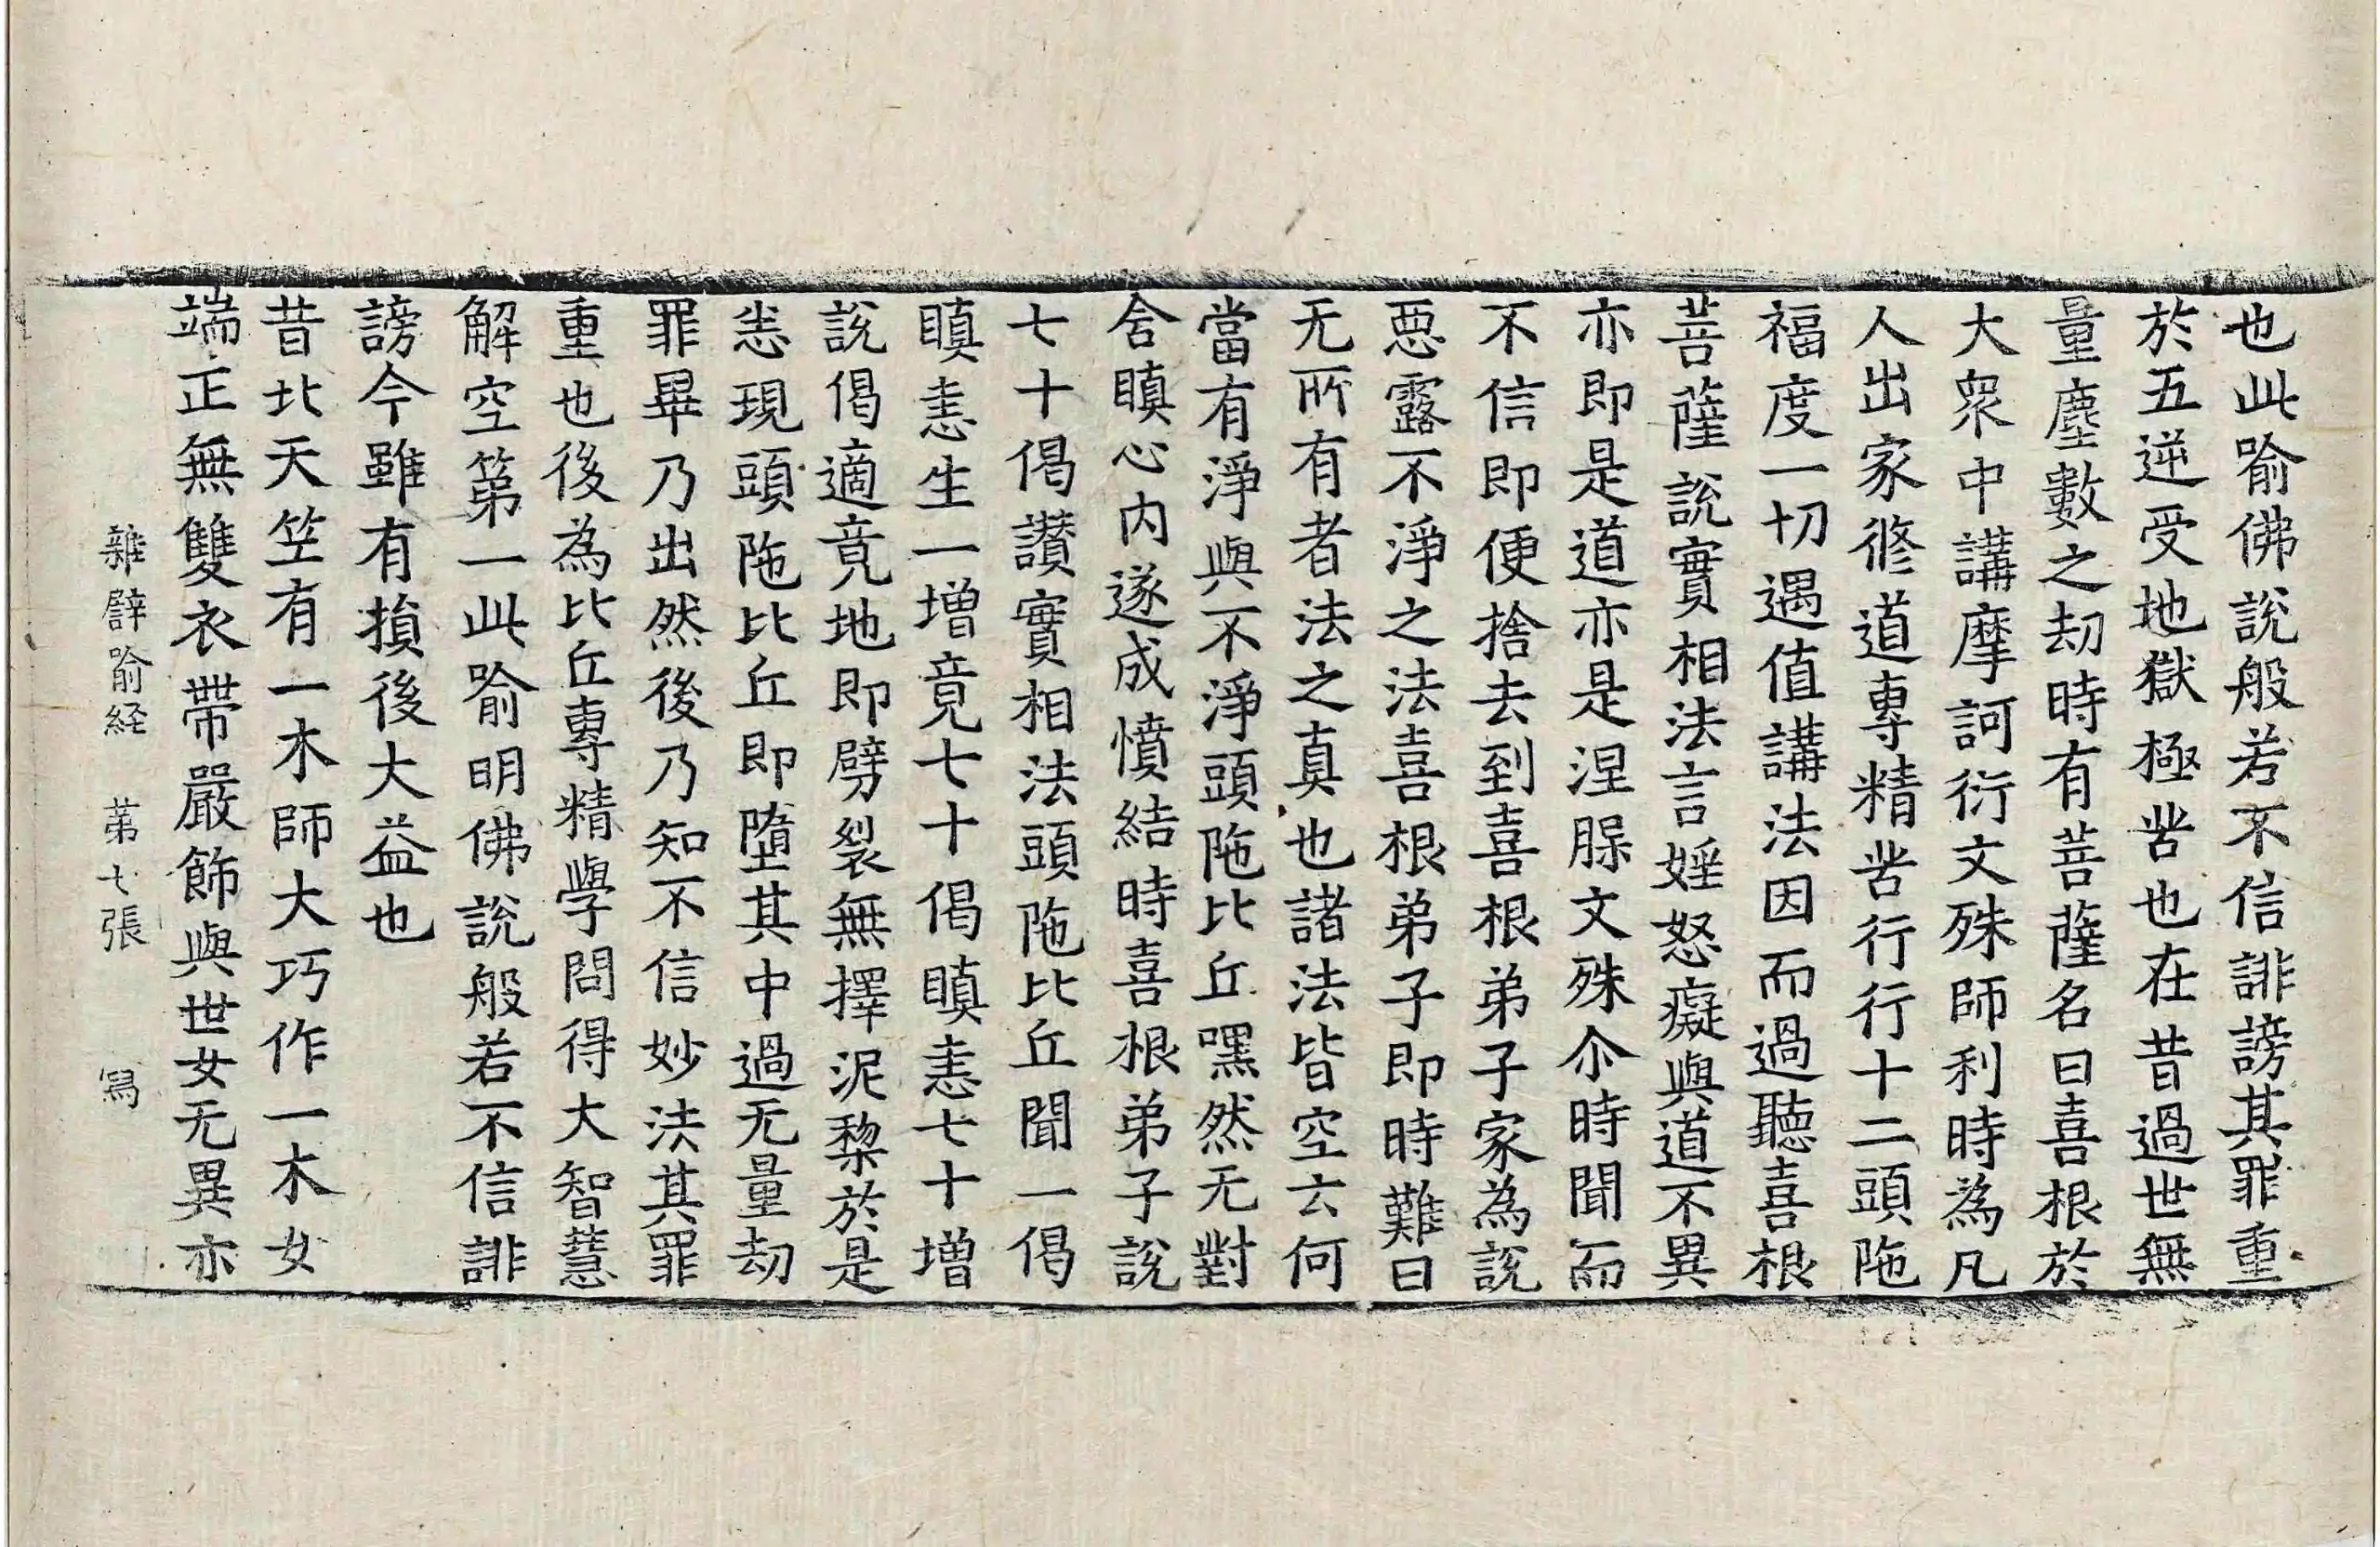 也此喻佛說般若不信誹謗其罪重
於五逆受地獄極苦也在昔過世無
量塵數之劫時有菩薩名曰喜根於
大衆中講摩訶衍文殊師利時為凡
人出家修道專精苦行行十二頭陁
福度一切遇值講法因而過聽喜根
菩薩說實相法言婬怒癡與道不異
亦即是道亦是涅腺文殊尒時聞而
不信即便捨去到喜根弟子家為說
惡露不淨之法喜根弟子即時難曰
无所有者法之真也諸法皆空云何
當有淨與不淨頭陁比丘嘿然无對
舍瞋心内遂成憤結時喜根弟子說
七十偈讚實相法頭陁比丘聞一偈
瞋恚生一增竟七十偈瞋恚七十增
說偈適竟地即劈裂無擇泥黎於是
恚現頭陁比丘即墮其中過无量劫
罪畢乃出然後乃知不信妙法其罪
重也後為比丘專精學問得大智慧
解空第一此喻明佛說般若不信誹
謗今雖有損後大益也
昔北天竺有一木師大巧作一木女
端正無雙衣帶嚴飾與世女无異亦
雜譬喻経 第七張 寫